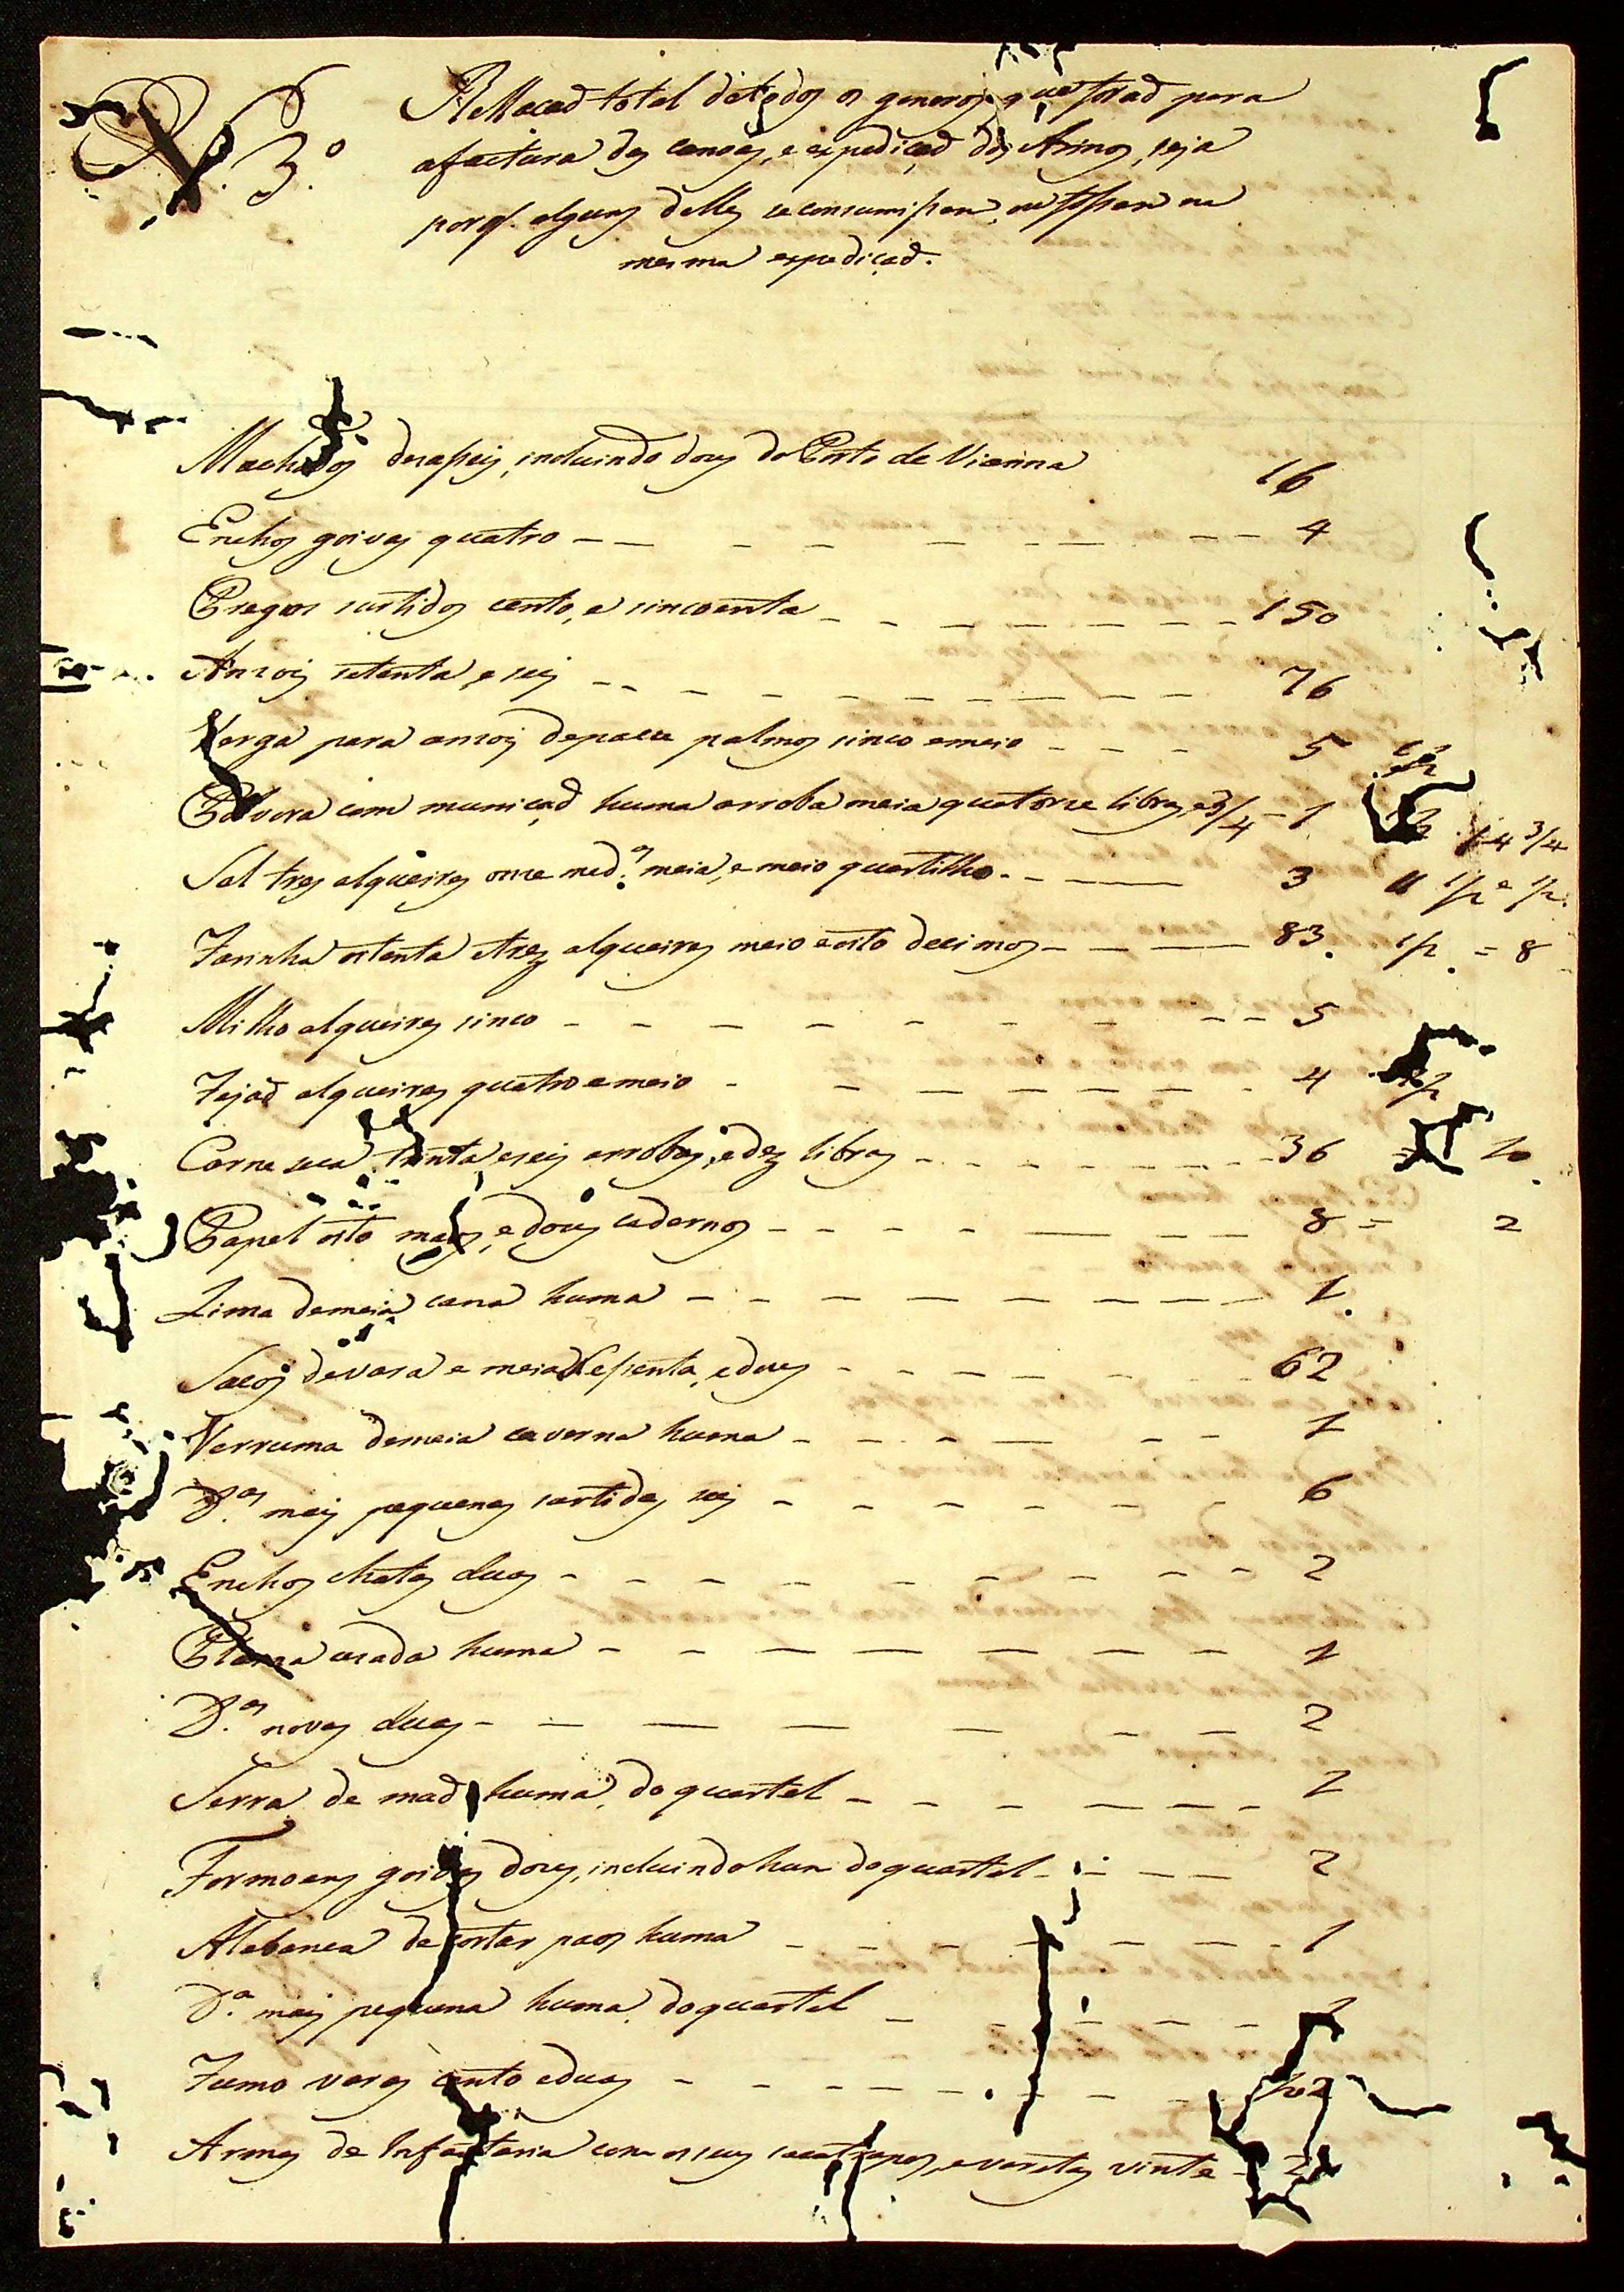 N. 3.º
Rellacaõ total de todos os generos que foraõ para
afactura das canoas, e expediçaõ dos Arinos, seja
porq. alguns delles se consumissem, ou fossem na
mesma expediçaõ.
Machados desaseis, incluindo dous do Porto de Vianna 16
Enchos goivas quatro 4
Pregos surtidos cento, e sincoenta 150
Anzois setenta, e seis 76
Verga para anzois de pacu palmos sinco e meio 5 1/2
Polvora com municaõ huma arroba meia quatorze libras e 3/4 1 1/2 14 3/4
Sal tres alqueires onze med.as meia, e meio quartilho 3 11 1/2 e 1/2
Farinha oitenta e trez alqueires meio e oito decimos 83. 1/2 = 8
Milho alqueires sinco 5
Fejaõ alqueires quatro e meio 4 1/2
Carne seca trinta e seis arrobas, e dez libras 36 = 10
Papel oito maos, e dous cadernos 8 = 2
Lima de meia cana huma 1
Sacos de vara e meia sessenta, e dous 62
Verruma de meia caverna huma 1
D.as mais pequenas sortidas seis 6
Enchos chatas duas 2
Plaina usada huma 1
D.as novas duas 2
Serra de maõ huma, do quartel 1
Formoens goivas dous, incluindo hum do quartel 2
Alabanca de cortar paos huma 1
D.a mais pequena huma, do quartel 1
Fumo varas cento e duas 102
Armas de Infantaria com os seus sacatrapos, e varetas vinte 20